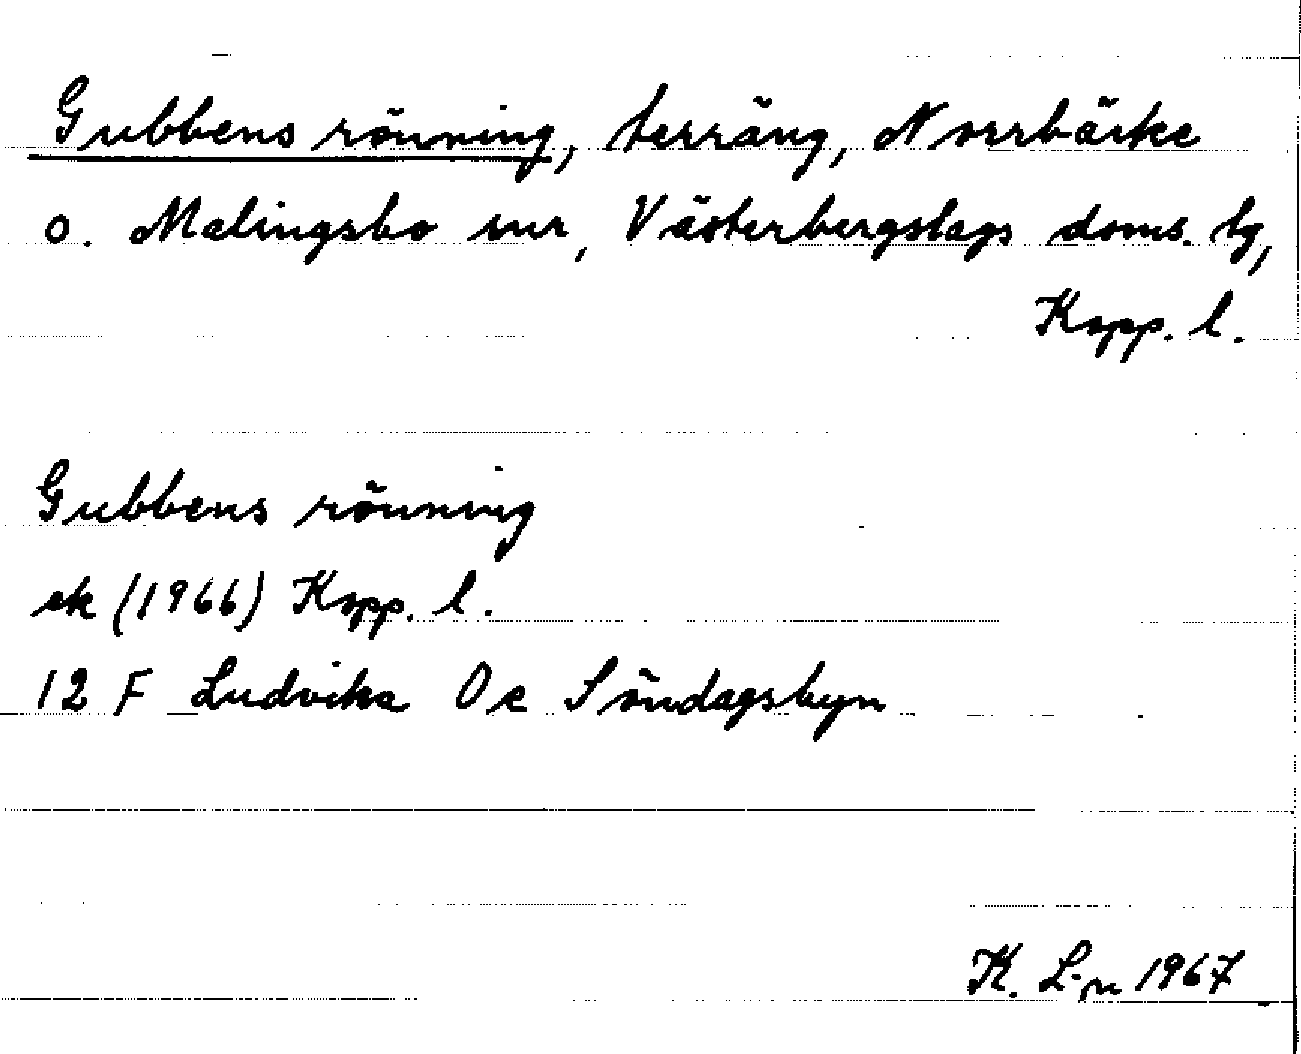 Gubbens rönning, terräng, Norrbärke
o. Malingsbo snr, Västerbergslags doms. tg,
Kopp. l.
Gubbens rönning
ek (1966) Kopp. l.
12 F Ludvika 0 e Söndagsbyn
K. L-n 1967